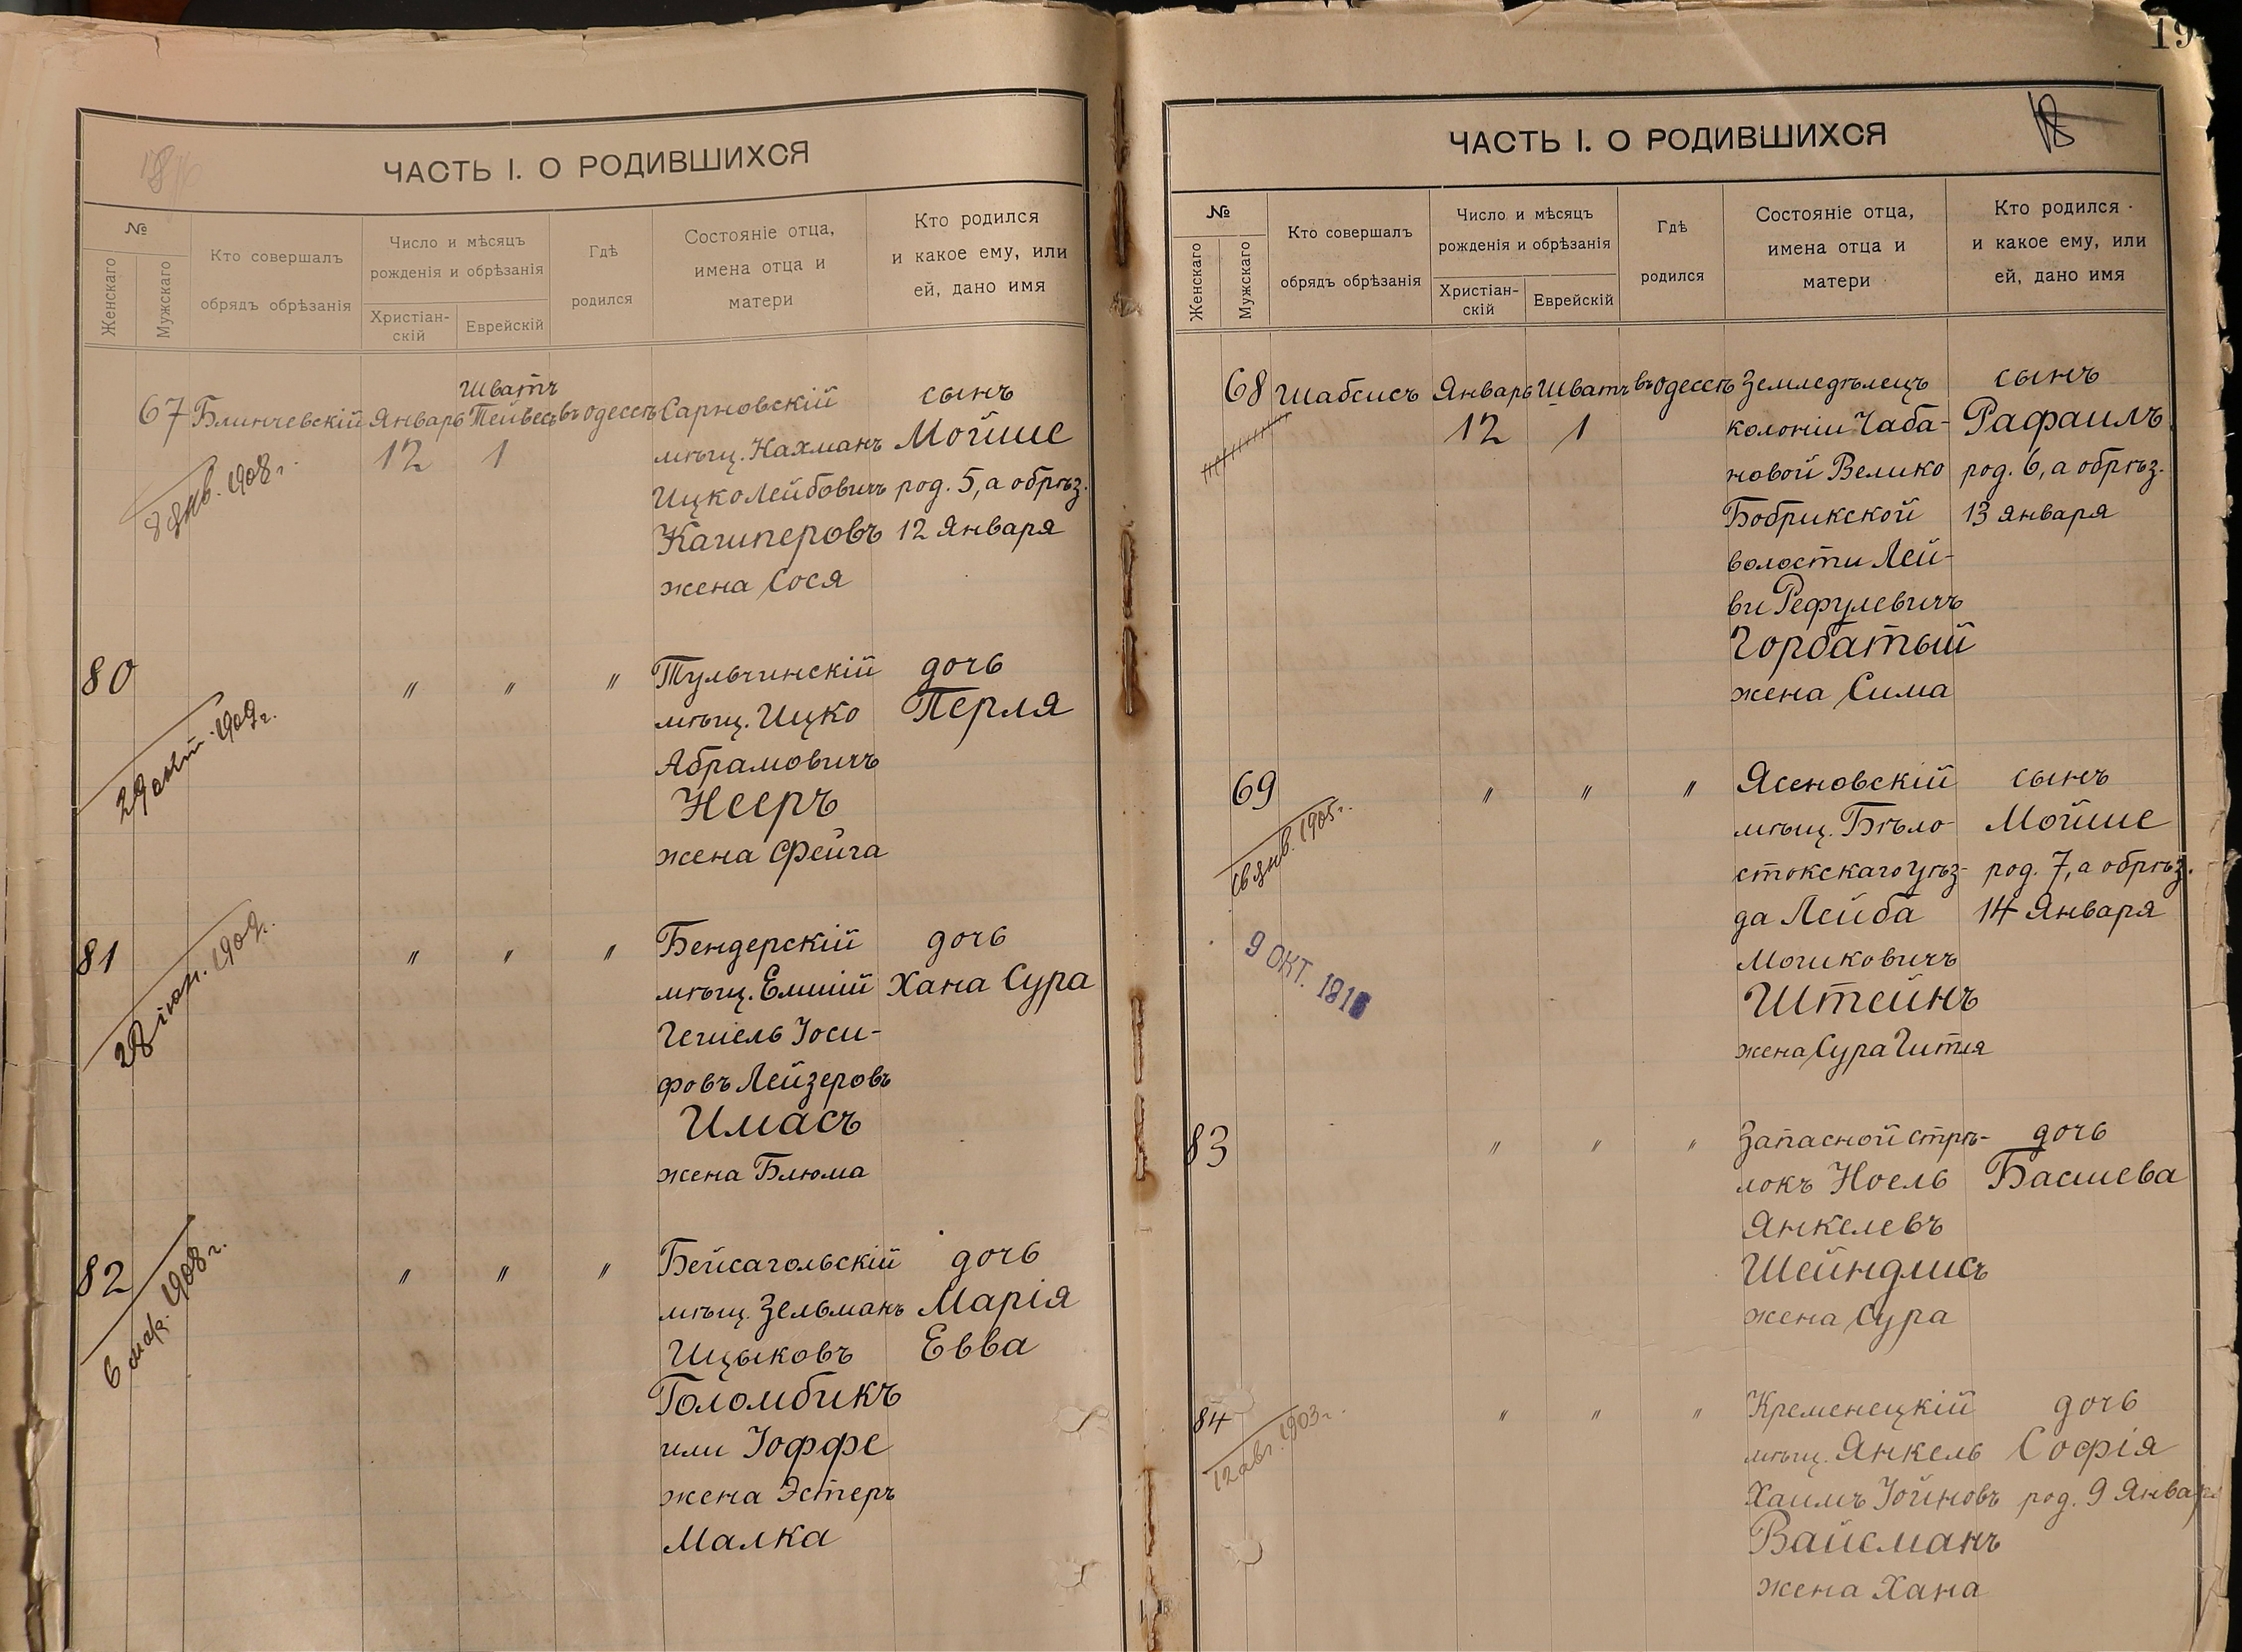 ЧАСТЬ I. О РОДИВШИХСЯ
№
Женскаго
Мужскаго
Кто совершалъ
обрядъ обрѣзанія
Число и мѣсяцъ
рожденія и обрѣзанія
Христіан-
скій
Еврейскій
Гдѣ
родился
Состояніе отца,
имена отца и
матери
Кто родился
и какое ему, или
ей, дано имя
Шватъ
67 Блинчевскій Январь Тейвесъ въ Одессѣ Сарновскій сынъ
12 1 мѣщ. Нахманъ Мойше
8 янв. 1908 г.
Ицко Лейбовичъ род. 5, а обрѣз.
Кашперовъ 12 Января
жена Сося
80 " " " Тульчинскій дочь
мѣщ. Ицко Перля
29 1909 г.
Абрамовичъ
Нееръ
жена Фейга
81 " " " Бендерскій дочь
мѣщ. Емшій Хана Сура
28 1909 г.
Гешель Іоси-
фовъ Лейзеровъ
Имасъ
жена Блюма
82 " " " Бейсагольскій дочь
мѣщ. Зельманъ Марія
6 мар. 1908 г.
Ицыковъ Евва
Голомбикъ
или Іоффе
жена Эстеръ
Малка
19
18
ЧАСТЬ I. О РОДИВШИХСЯ
№
Женскаго
Мужскаго
Кто совершалъ
обрядъ обрѣзанія
Число и мѣсяцъ
рожденія и обрѣзанія
Христіан-
скій
Еврейскій
Гдѣ
родился
Состояніе отца,
имена отца и
матери
Кто родился
и какое ему, или
ей, дано имя
68 Шабсисъ Январь Шватъ въ Одессѣ Земледѣлецъ сынъ
12 1 колоніи Чаба- Рафаилъ
новой Велико род. 6, а обрѣз.
Бобрикской 13 января
волости Лей-
ви Рефулевичъ
Горбатый
жена Сима
69 " " " Ясеновскій сынъ
мѣщ. Бѣло- Мойше
16 янв. 1905 г.
стокскаго уѣз- род. 7, а обрѣз.
да Лейба 14 Января
9 ОКТ. 191
Мошковичъ
Штейнъ
жена Сура Гитля
83 " " " Запасной стрѣ- дочь
локъ Ноель Басшева
Янкелевъ
Шейндлисъ
жена Сура
84 " " " Кременецкій дочь
мѣщ. Янкель Софія
12 авг. 1903 г.
Хаимъ Іойновъ род. 9 Января
Вайсманъ
жена Хана